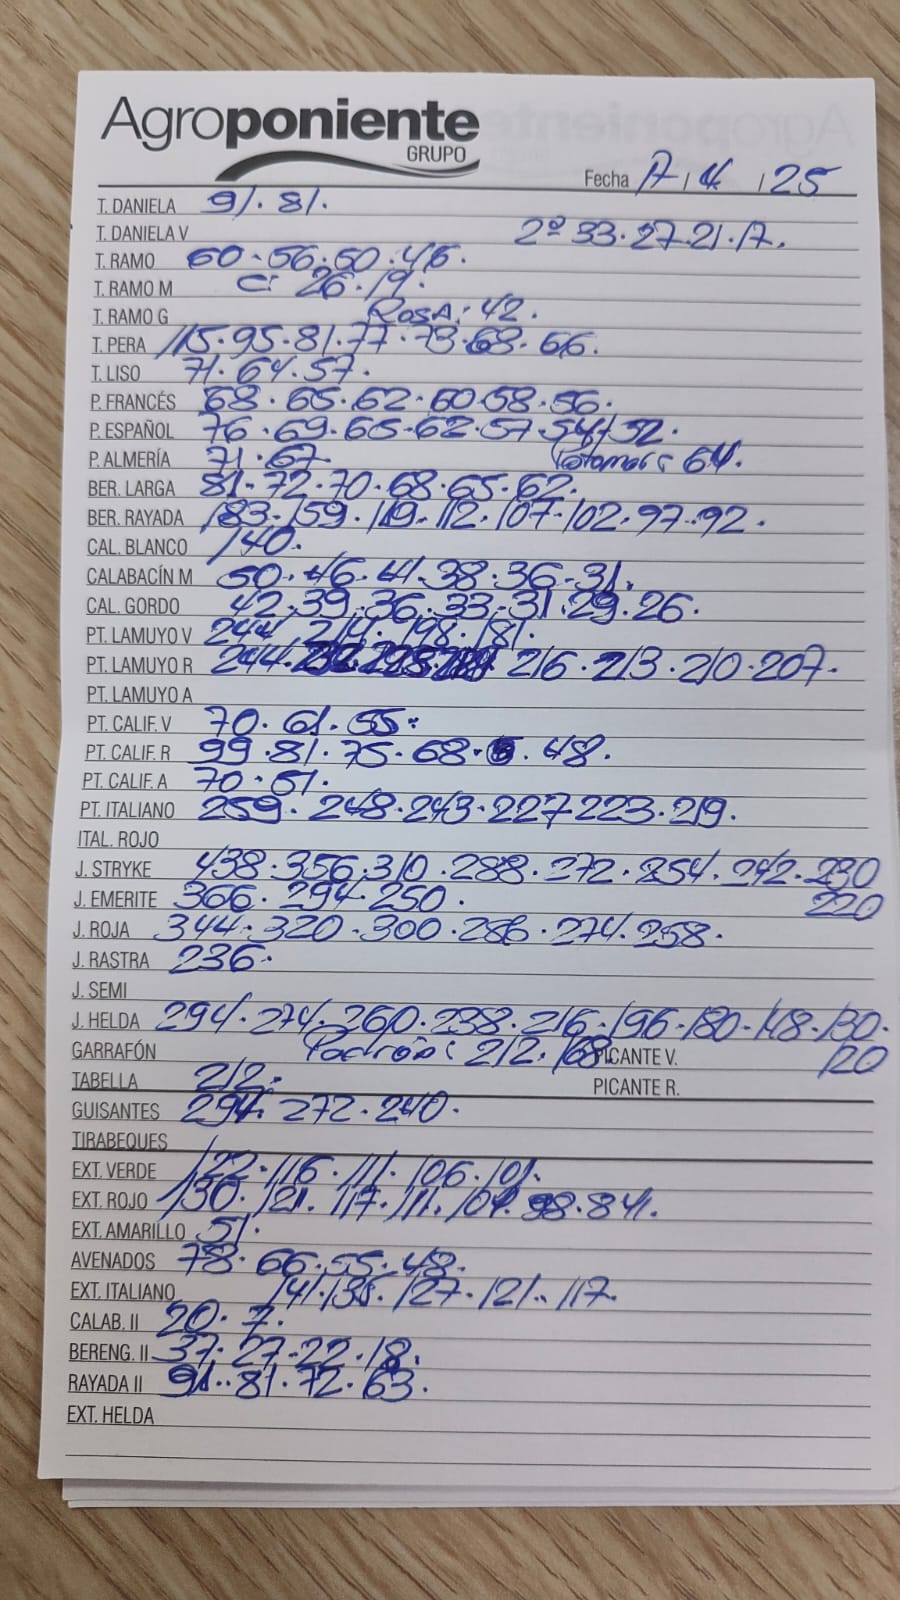 Agroponiente
GRUPO
Fecha 17 / 4 / 25
T. DANIELA 91. 81.
T. DANIELA V 2º 33. 27. 21. 17.
T. RAMO 60. 56. 50. 46.
T. RAMO M C: 26. 19.
T. RAMO G ROSA: 42.
T. PERA 115. 95. 81. 77. 73. 68. 66.
T. LISO 71. 64. 57.
P. FRANCÉS 68. 65. 62. 60. 58. 56.
P. ESPAÑOL 76. 69. 65. 62. 57. 54. 52.
P. ALMERÍA 71. 67. 64.
BER. LARGA 81. 72. 70. 68. 65. 62.
BER. RAYADA 183. 159. 119. 112. 107. 102. 97. 92.
CAL. BLANCO 140.
CALABACÍN M 50. 46. 41. 38. 36. 31.
CAL. GORDO 42. 39. 36. 33. 31. 29. 26.
PT. LAMUYO V 244. 214. 198. 181.
PT. LAMUYO R 244. 216. 213. 210. 207.
PT. LAMUYO A
PT. CALIF. V 70. 61. 55.
PT. CALIF. R 99. 81. 75. 68. 48.
PT. CALIF. A 70. 51.
PT. ITALIANO 259. 248. 243. 227 223. 219.
ITAL. ROJO
J. STRYKE 438. 356. 310. 288. 272. 254. 242. 230
J. EMERITE 366. 294. 250. 220
J. ROJA 344. 320. 300. 286. 274. 258.
J. RASTRA 236.
J. SEMI
J. HELDA 294. 274. 260. 238. 216. 196. 180. 148. 130.
GARRAFÓN 212. 168 PICANTE V. 120
TABELLA 212. PICANTE R.
GUISANTES 294. 272. 240.
TIRABEQUES
EXT. VERDE 122. 116. 111. 106. 101.
EXT. ROJO 130. 121. 117. 111. 104. 98. 84.
EXT. AMARILLO 51.
AVENADOS 78. 66. 55. 48.
EXT. ITALIANO 141. 135. 127. 121. 117.
CALAB. II 20. 7.
BERENG. II 37. 27. 22. 18.
RAYADA II 91. 81. 72. 63.
EXT. HELDA